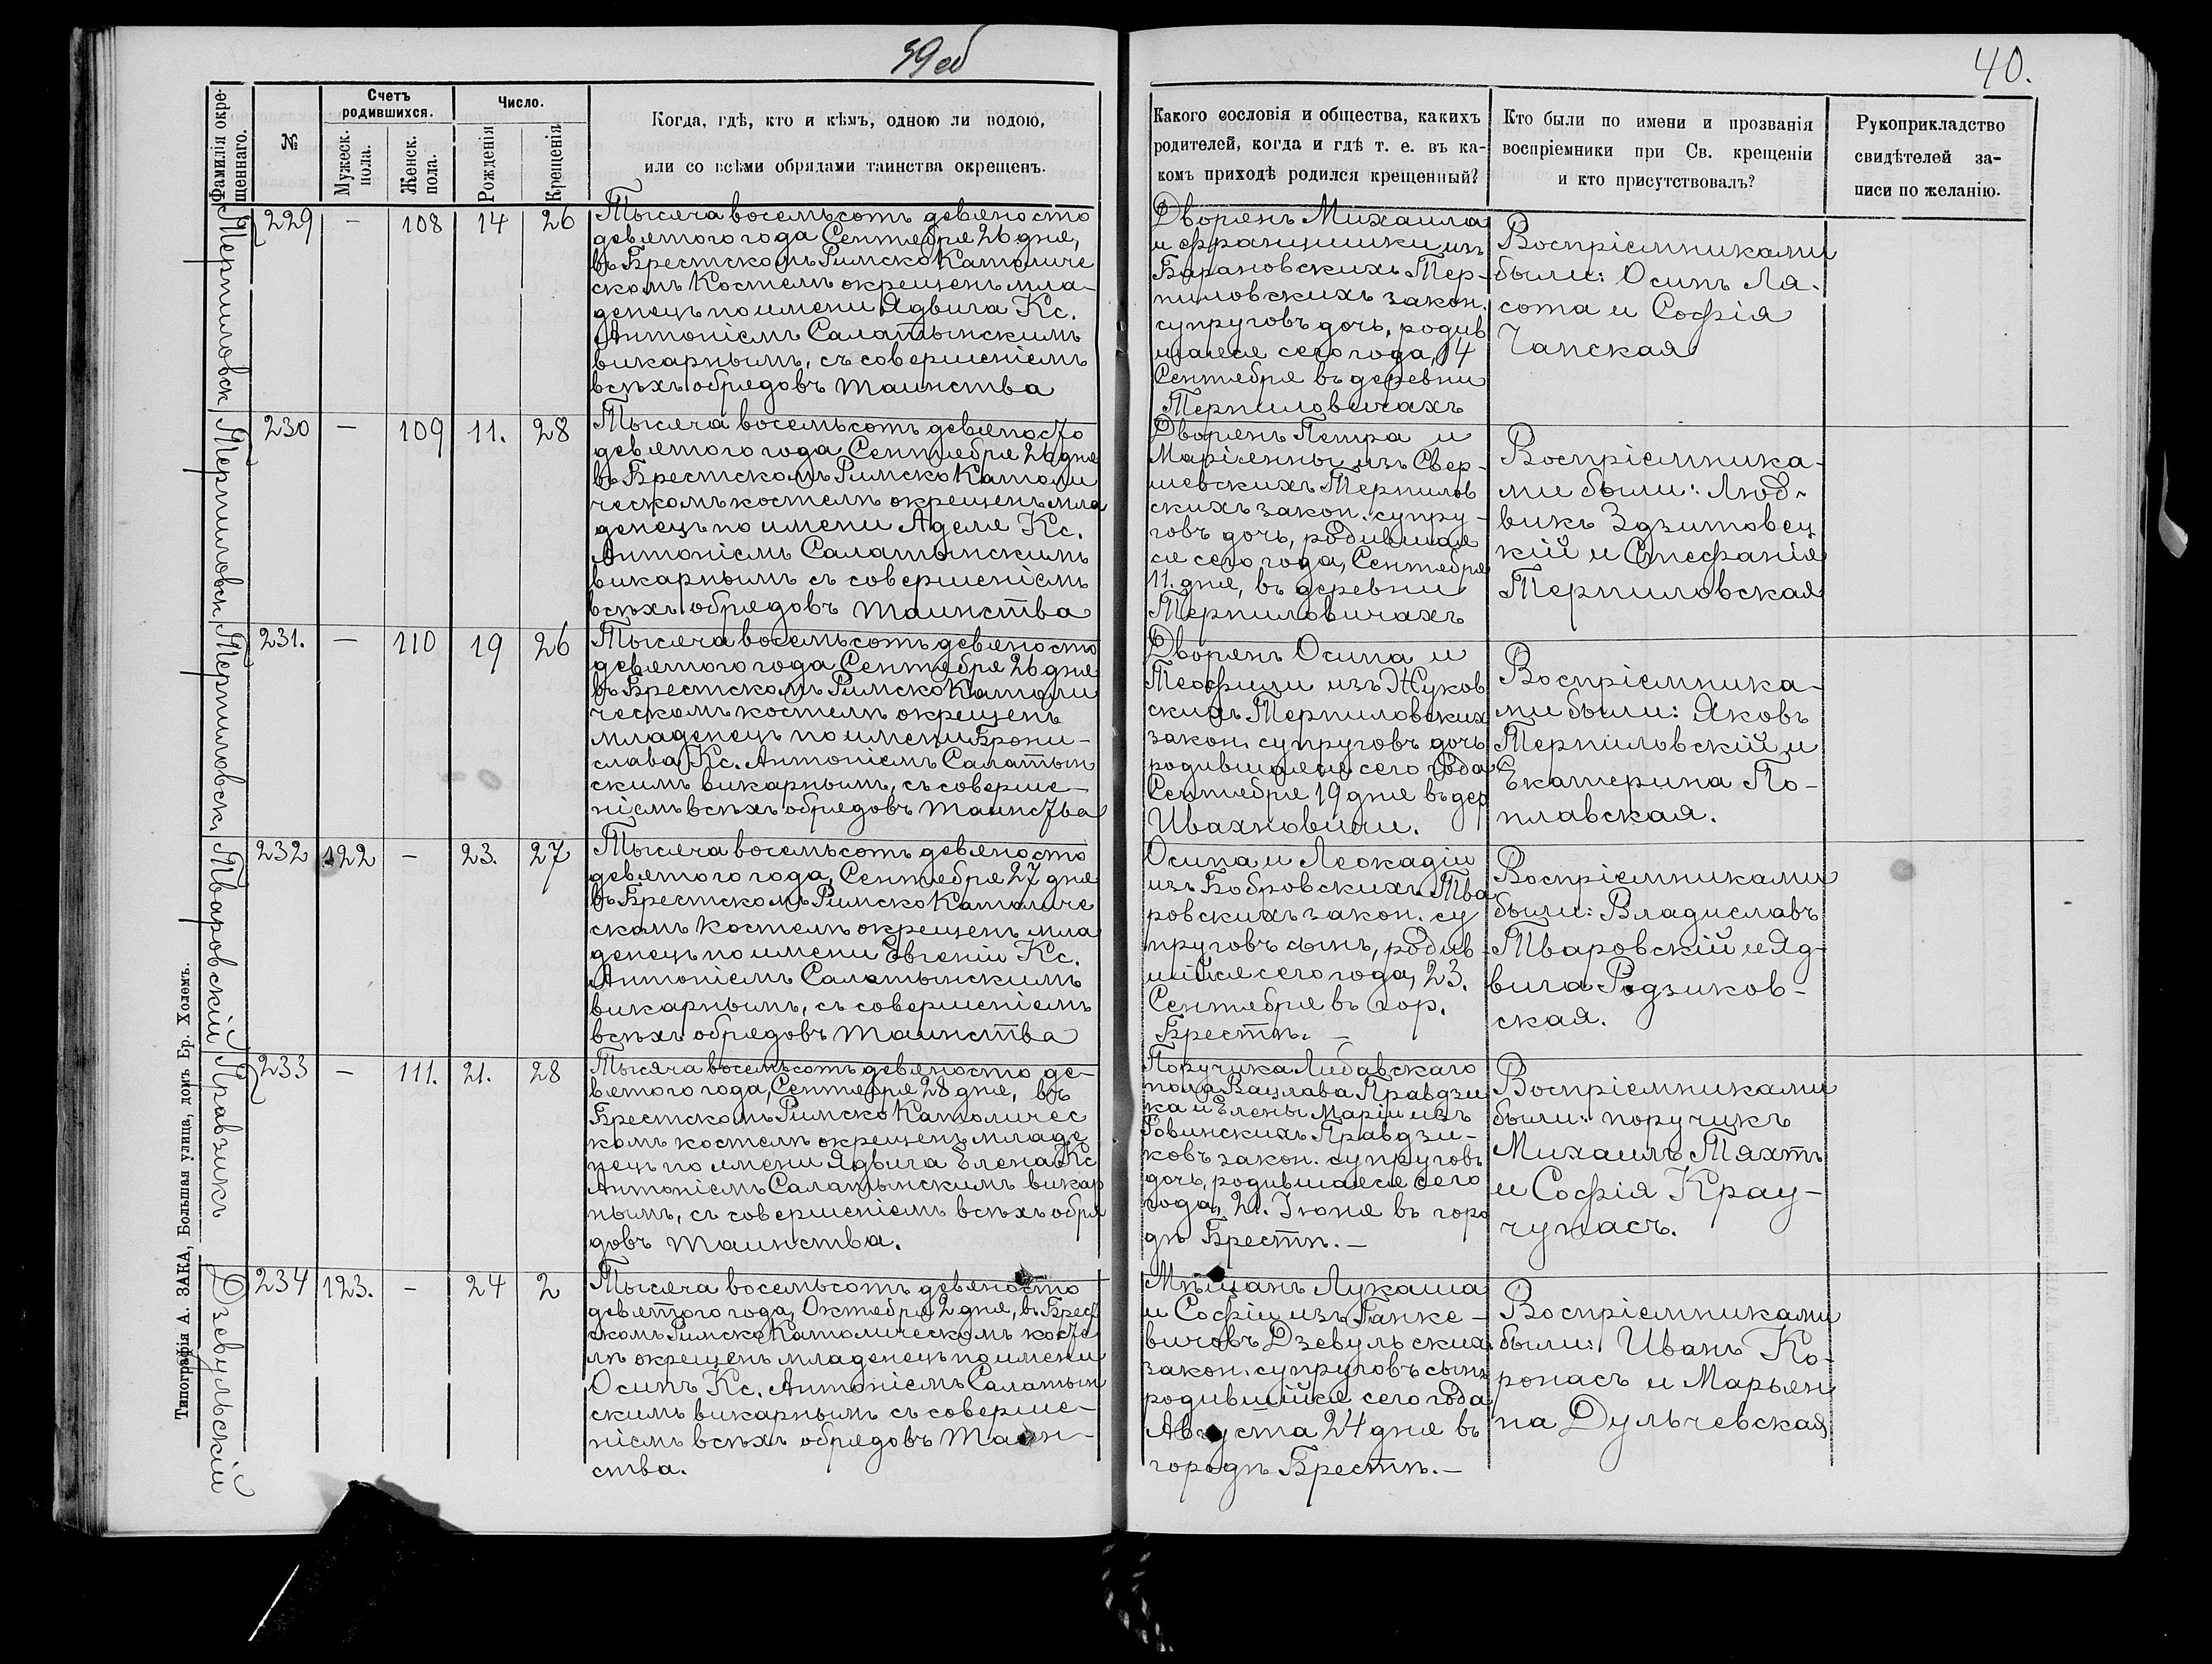 39 об
40.
Фамилія окре-
щеннаго.
№
Счетъ
родившихся.
Мужеск.
пола.
Женск.
пола.
Число.
Рожденія
Крещенія
Когда, гдѣ, кто и кѣмъ, одною ли водою,
или со всѣми обрядами таинства окрещенъ.
Какого сословія и общества, какихъ
родителей, когда и гдѣ т. е. въ ка-
комъ приходѣ родился крещенный?
Кто были по имени и прозванія
воспріемники при Св. крещеніи
и кто присутствовалъ?
Рукоприкладство
свидѣтелей за-
писи по желанію.
Терпиловск.
229 — 108 14 26
Тысяча восемьсотъ девяносто
девятого года Сентября 26 дня,
въ Брестскомъ Римско Католиче
скомъ Костелѣ окрещенъ мла-
денецъ по имени Ядвига Кс.
Антоніемъ Салатынскимъ
викарнымъ, съ совершеніемъ
всѣхъ обрядовъ таинства
Дворянъ Михаила
и Францишки изъ
Барановскихъ Тер-
пиловскихъ закон.
супруговъ дочь, родив
шаяся сего года, 14
Сентября въ деревни
Терпиловичахъ
Воспріемниками
были: Осипъ Ля-
сота и Софія
Чапская
Терпиловск.
230 — 109 11. 28
Тысяча восемьсотъ девяносто
девятого года Сентября 26 дня
въ Брестскомъ Римско Католи
ческомъ костелѣ окрещенъ мла
денецъ по имени Аделя Кс.
Антоніемъ Салатынскимъ
викарнымъ съ совершеніемъ
всѣхъ обрядовъ таинства
Дворянъ Петра и
Маріенны изъ Свер-
шевскихъ Терпилов
скихъ закон. супру-
говъ дочь, родившая
ся сего года, Сентября
11. дня, въ деревни
Терпиловичахъ
Воспріемника-
ми были: Люд-
викъ Здзитовец
кій и Стефанія
Терпиловская
Терпиловск.
231. — 110 19 26
Тысяча восемьсотъ девяносто
девятого года Сентября 26 дня
въ Брестскомъ Римско Католи
ческомъ костелѣ окрещенъ
младенецъ по имени Брони-
слава Кс. Антоніемъ Салатын
скимъ викарнымъ, съ соверше-
ніемъ всѣхъ обрядовъ таинства
Дворянъ Осипа и
Теофили изъ Жуков
скихъ Терпиловскихъ
закон. супруговъ дочь
родившаяся сего года
Сентября 19 дня въ дер
Ивахновичи.
Воспріемника-
ми были: Яковъ
Терпиловскій и
Екатерина По-
плавская.
Тваровскій
232 122 — 23. 27
Тысяча восемьсотъ девяносто
девятого года, Сентября 27 дня
въ Брестскомъ Римско Католиче
скомъ Костелѣ окрещенъ мла
денецъ по имени Евгеній Кс.
Антоніемъ Салатынскимъ
викарнымъ, съ совершеніемъ
всѣхъ обрядовъ таинства
Осипа и Леокадіи
изъ Бобровскихъ Тва
ровскихъ закон. су
пруговъ сынъ, родив-
шійся сего года, 23.
Сентября въ гор.
Брестѣ. —
Воспріемниками
были: Владиславъ
Тваровскій и Яд-
вига Родзиков-
ская.
Правзикъ
233 — 111. 21. 28
Тысяча восемьсотъ девяносто де-
вятого года, Сентября 28 дня, въ
Брестскомъ Римско Католичес
комъ костелѣ окрещенъ младе
нецъ по имени Ядвига Елена Кс
Антоніемъ Салатынскимъ викар
нымъ, съ совершеніемъ всѣхъ обря
довъ таинства.
Поручика Либавскаго
полка Вацлава Правдзи
ка и Елены Маріи изъ
Ровинскихъ Правдзи-
ковъ закон. супруговъ
дочь, родившаяся сего
года, 21. Іюня въ горо
дѣ Брестѣ. —
Воспріемниками
были: поручикъ
Михаилъ Тяхтъ
и Софія Крау-
чунасъ.
Дзевульскій
234 123. — 24 2
Тысяча восемьсотъ девяносто
девятого года, Октября 2 дня, въ Брест
скомъ Римско Католическомъ косте
лѣ окрещенъ младенецъ по имени
Осипъ Кс. Антоніемъ Салатын
скимъ викарнымъ съ соверше-
ніемъ всѣхъ обрядовъ таин-
ства.
Мѣщанъ Лукаша
и Софіи изъ Ганке-
вичовъ Дзевульскихъ
закон. супруговъ сынъ
родившійся сего года
Августа 24 дня въ
городѣ Брестѣ. —
Воспріемниками
были: Иванъ Ко-
ронасъ и Марьян
на Дульчевская
Типографія А. ЗАКА, Большая улица, домъ Ер. Холемъ.